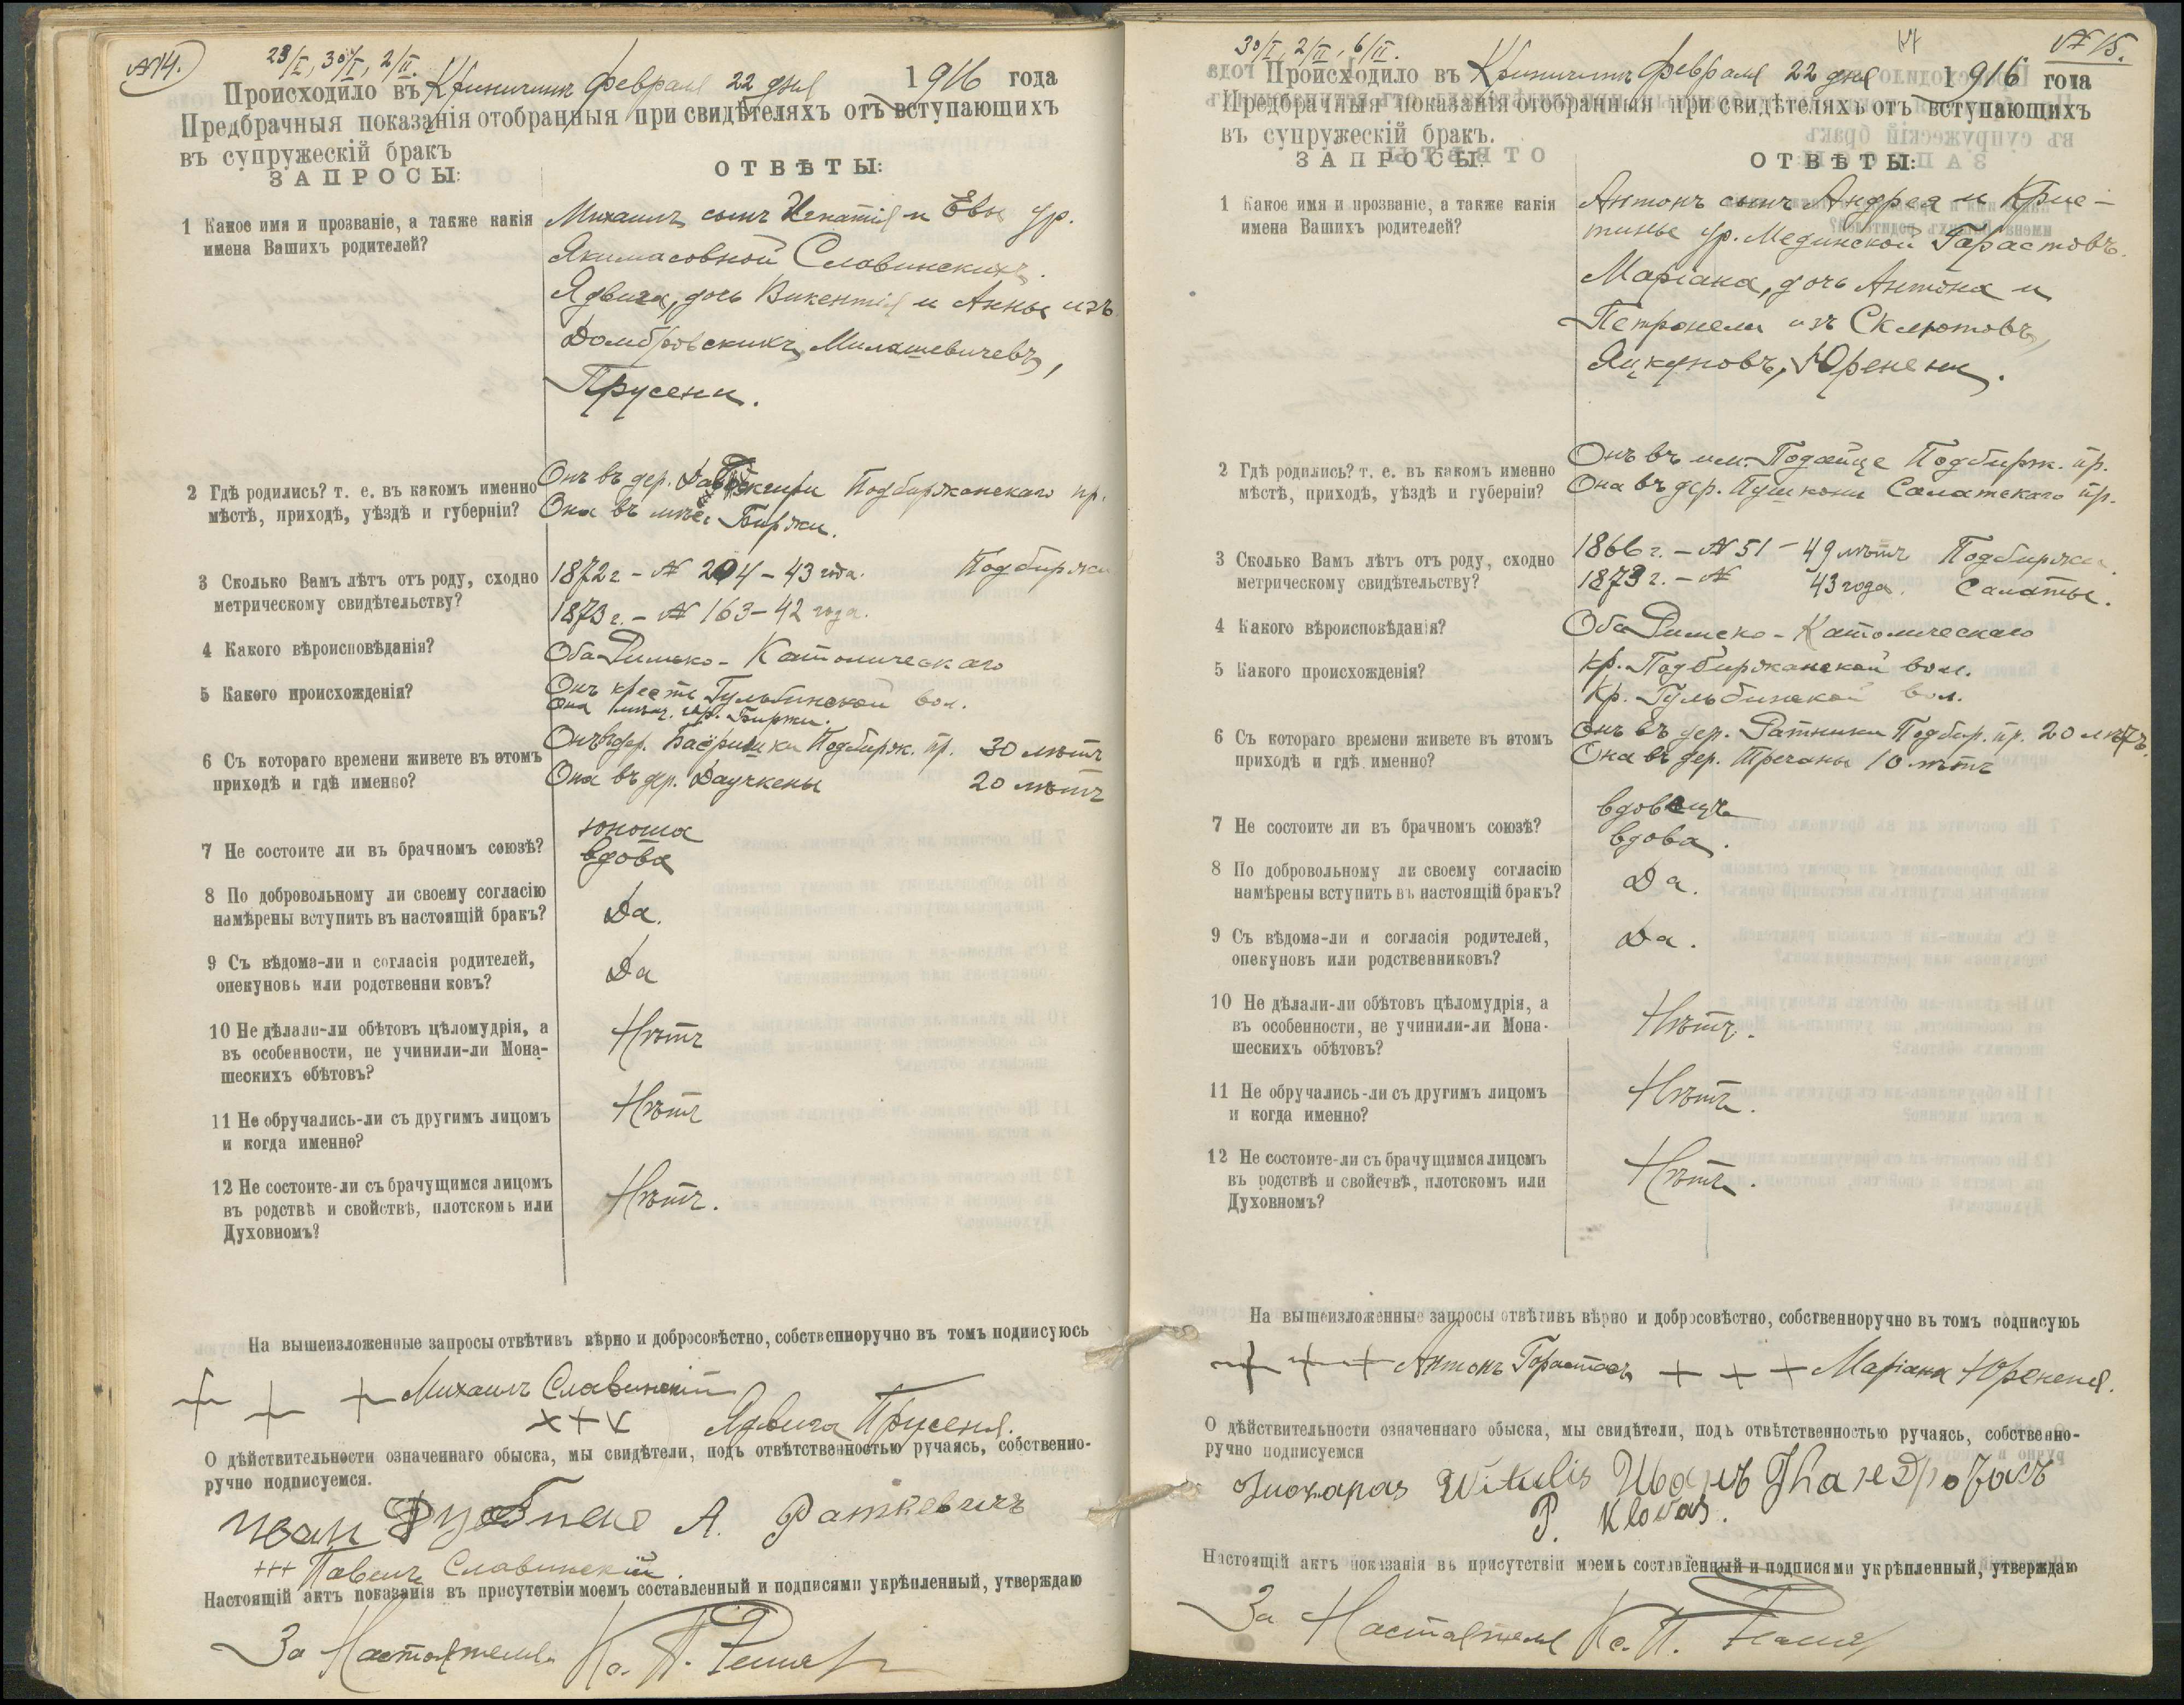 № 14.
23/I, 30/I, 2/II.
Происходило въ Криничинъ Февраля 22 дня 1916 года
Предбрачныя показанія отобранныя при свидѣтеляхъ отъ вступающихъ
въ супружескій бракъ
ЗАПРОСЫ: ОТВѢТЫ:
1 Какое имя и прозваніе, а также какія
имена Вашихъ родителей?
Михаилъ сынъ Игнатія и Евы ур.
Якимасовной Славинскихъ.
Ядвига, дочь Викентія и Анны изъ
Домбровскихъ, Милашевичевъ,
Прусени.
2 Гдѣ родились? т. е. въ какомъ именно
мѣстѣ, приходѣ, уѣздѣ и губерніи?
Онъ въ дер. Подбиржанскаго пр.
Она въ мѣс. Биржи.
3 Сколько Вамъ лѣтъ отъ роду, сходно
метрическому свидѣтельству?
1872 г. – № 204 – 43 года. Подбиржи
1873 г. – № 163 – 42 года.
4 Какого вѣроисповѣданія?
Оба Римско-Католическаго
5 Какого происхожденія?
Онъ крест. Гульбинской вол.
Она мѣщ. гор. Биржи.
6 Съ котораго времени живете въ этомъ
приходѣ и гдѣ именно?
Онъ въ дер. Подбирж. пр. 30 лѣтъ
Она въ дер. Даучкены 20 лѣтъ
7 Не состоите ли въ брачномъ союзѣ?
юноша
вдова
8 По добровольному ли своему согласію
намѣрены вступить въ настоящій бракъ?
Да.
9 Съ вѣдома-ли и согласія родителей,
опекуновъ или родственни ковъ?
Да
10 Не дѣлали-ли обѣтовъ цѣломудрія, а
въ особенности, не учинили-ли Мона-
шескихъ обѣтовъ?
Нѣтъ
11 Не обручались-ли съ другимъ лицомъ
и когда именно?
Нѣтъ
12 Не состоите-ли съ брачущимся лицомъ
въ родствѣ и свойствѣ, плотскомъ или
Духовномъ?
Нѣтъ.
На вышеизложенные запросы отвѣтивъ вѣрно и добросовѣстно, собственноручно въ томъ подписуюсь
+ + + Михаилъ Славинскій
х + х Ядвига Прусеня.
О дѣйствительности означеннаго обыска, мы свидѣтели, подъ отвѣтственностью ручаясь, собственно-
ручно подписуемся.
А. Раткевичъ
+++ Павелъ Славинскій.
Настоящій актъ показанія въ присутствіи моемъ составленный и подписями укрѣпленный, утверждаю
За Настоятеля Кс. П.
№ 15.
30/I, 2/II, 6/II.
Происходило въ Криничинъ Февраля 22 дня 1916 года
Предбрачныя показанія отобранныя при свидѣтеляхъ отъ вступающихъ
въ супружескій бракъ.
ЗАПРОСЫ: ОТВѢТЫ:
1 Какое имя и прозваніе, а также какія
имена Вашихъ родителей?
Антонъ сынъ Андрея и Крис-
тины ур. Мединской Гарастовъ.
Маріана, дочь Антона и
Петронели изъ Склютовъ,
Яцкуновъ, Юренени.
2 Гдѣ родились? т. е. въ какомъ именно
мѣстѣ, приходѣ, уѣздѣ и губерніи?
Онъ въ им. Подбирж. пр.
Она въ дер. Салатскаго пр.
3 Сколько Вамъ лѣтъ отъ роду, сходно
метрическому свидѣтельству?
1866 г. – № 51 – 49 лѣтъ Подбиржи.
1873 г. – № 43 года. Салаты.
4 Какого вѣроисповѣданія?
Оба Римско-Католическаго
5 Какого происхожденія?
кр. Подбиржанской вол.
кр. Гульбинской вол.
6 Съ котораго времени живете въ этомъ
приходѣ и гдѣ именно?
Онъ въ дер. Ратники Подбир. пр. 20 лѣтъ.
Она въ дер. Тречаны 10 лѣтъ
7 Не состоите ли въ брачномъ союзѣ?
вдовецъ
вдова.
8 По добровольному ли своему согласію
намѣрены вступить въ настоящій бракъ?
Да.
9 Съ вѣдома-ли и согласія родителей,
опекуновъ или родственниковъ?
Да.
10 Не дѣлали-ли обѣтовъ цѣломудрія, а
въ особенности, не учинили-ли Мона-
шескихъ обѣтовъ?
Нѣтъ.
11 Не обручались-ли съ другимъ лицомъ
и когда именно?
Нѣтъ.
12 Не состоите-ли съ брачущимся лицомъ
въ родствѣ и свойствѣ, плотскомъ или
Духовномъ?
Нѣтъ.
На вышеизложенные запросы отвѣтивъ вѣрно и добросовѣстно, собственноручно въ томъ подписуюь
+ + + Антонъ Гарастовъ + + + Маріана Юрененя.
О дѣйствительности означеннаго обыска, мы свидѣтели, подъ отвѣтственностью ручаясь, собственно-
ручно подписуемся
Witulis Иванъ
P. Klovas.
Настоящій актъ показанія въ присутствіи моемъ составленный и подписями укрѣпленный, утверждаю
За Настоятеля Кс. П.